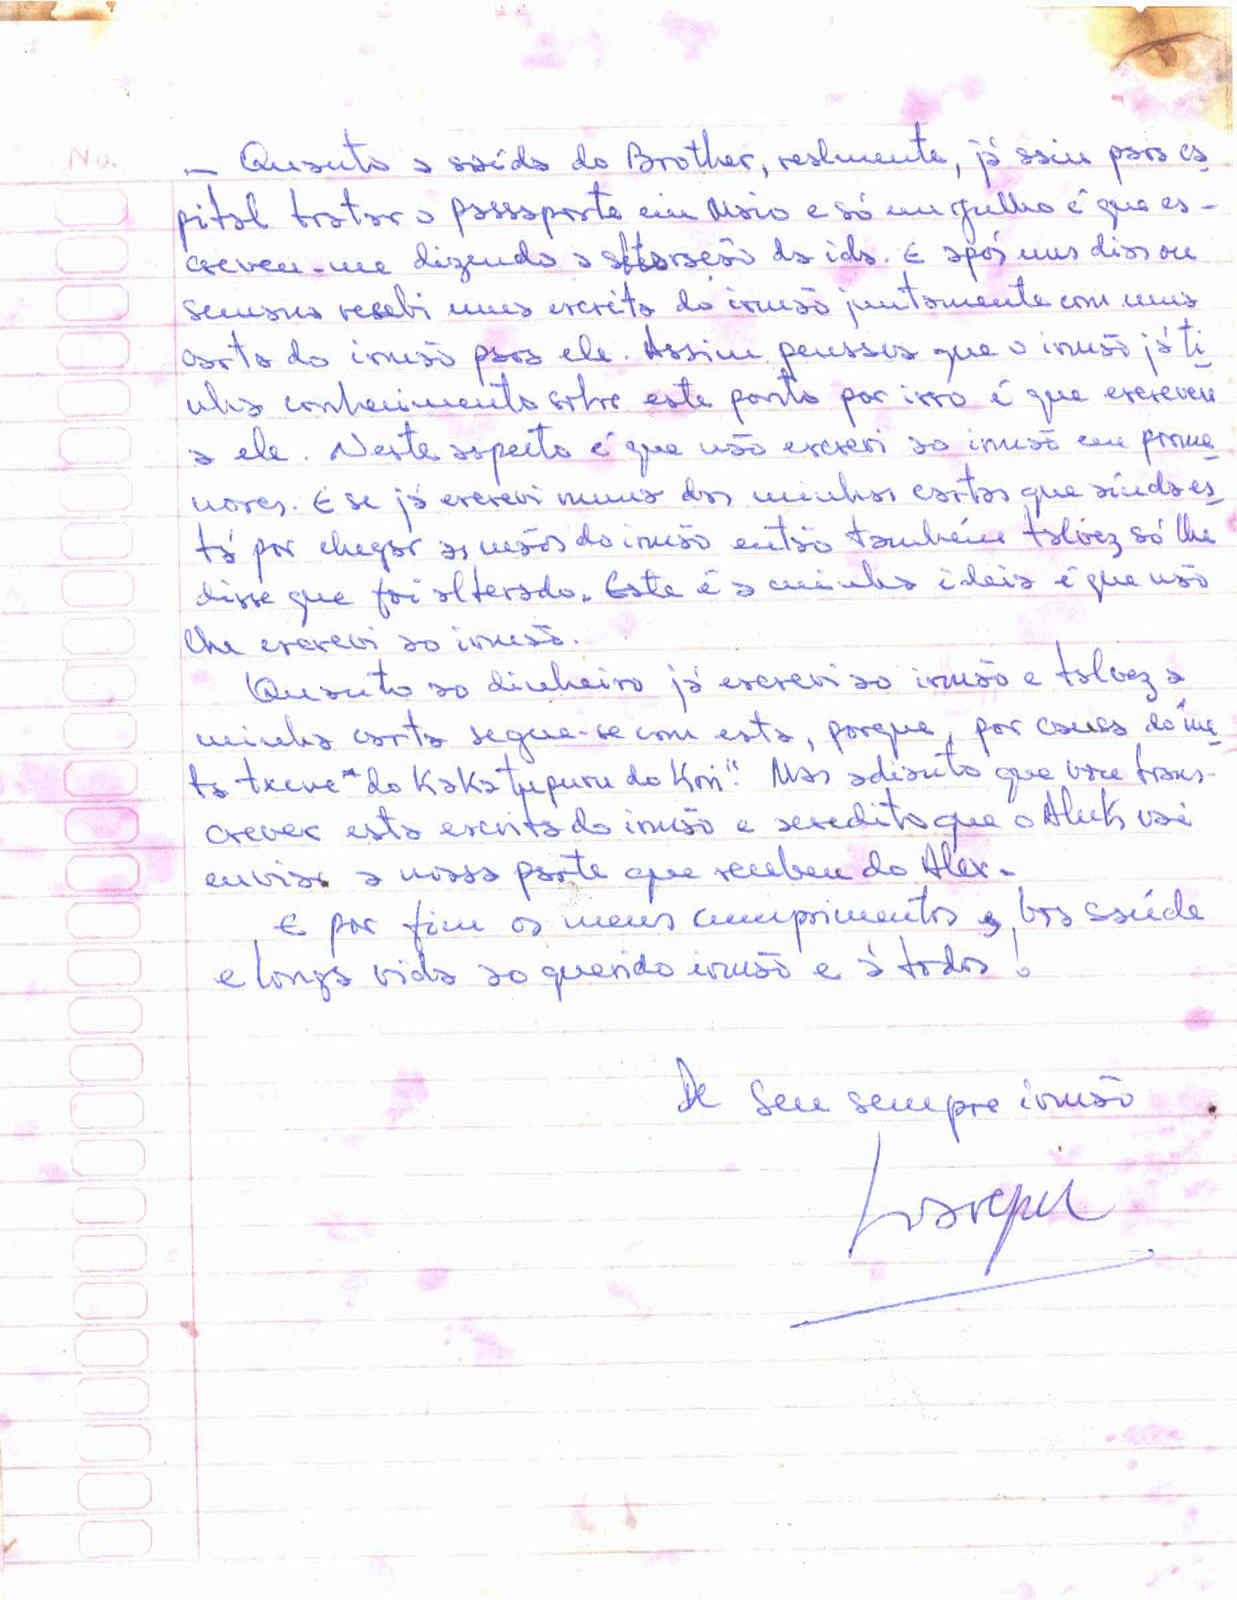 No.
– Quanto a saída do Brother, realmente, já saiu para ca-
pital tratar o passaporte em Maio e só em Julho é que es-
creveu-me dizendo a alteração da ida. E após uns dias ou
semana recebi uma escrita do irmão juntamente com uma
carta do irmão para ele. Assim pensava que o irmão já ti-
nha conhecimento sobre este ponto por isso é que escreveu
a ele. Neste aspecto é que não escrevi ao irmão em porme-
nores. E se já escrevi numa das minhas cartas que ainda es-
tá por chegar as mãos do irmão então também talvez só lhe
disse que foi alterado. Este é a minha ideia é que não
lhe escrevi ao irmão.
Quanto ao dinheiro já escrevi ao irmão e talvez a
minha carta segue-se com esta, porque, por causa do
"do Kaka do Kori". Mas adianto que vou trans-
crever esta escrita do irmão e acredito que o Aluk vai
enviar a nossa parte que recebeu do Alex.
E por fim os meus cumprimentos, boa saúde
e longa vida ao querido irmão e á todos!
De seu sempre irmão